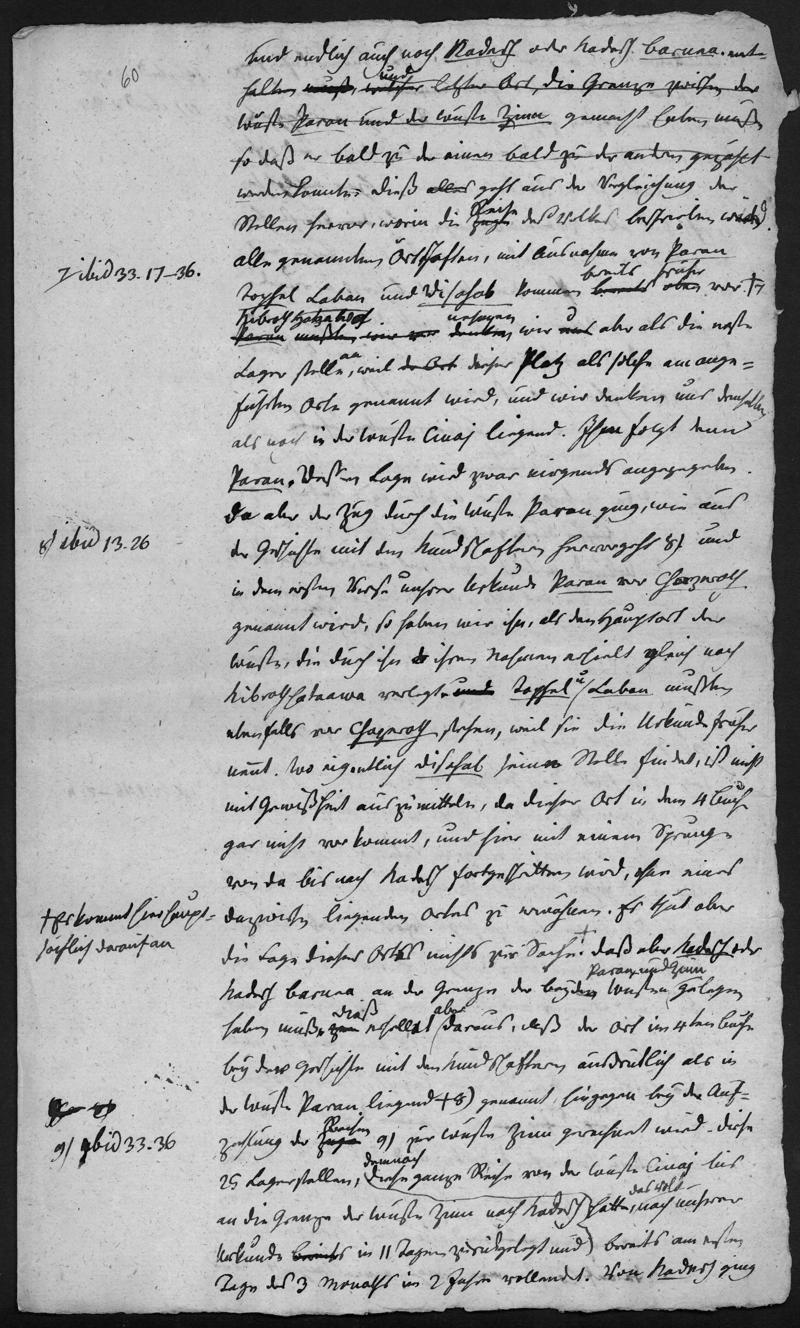 60
Und endlich auch noch Kadesch oder Kadesch barnea. ent-
halten und letzter Ort, die Grenze zwischen der
Wüste Paran und der Wüste Zinn gemacht haben mußte
so daß er bald zu der einen bald zu der andern gezählt
werden konnte. dieß alles geht aus der Vergleichung der
Stellen hervor, worin die Reise des Volkes beschrieben wird.
7 ibid 33. 17-36.
alle genannten Ortschaften, mit Ausnahme von Paran
Tophel Laban und Disahab kommen bereits früher vor † 7
Kibroth hataawa nehmen wir aber als die erste
Lagerstelle an, weil dieser Platz als solche am ange=
führten Orte genannt wird, und wir denken uns denselben
als noch in der Wüste Cinaj liegend. Ihm folgt dann
Paran. Dessen Lage wird zwar nirgends angegeben.
Da aber der Zug durch die Wüste Paran ging, wie aus
8) ibid 13. 26
der Geschichte mit den Kundschaftern hervorgeht 8) und
in dem ersten Verse unsrer Urkunde Paran vor Chazeroth
genannt wird, so haben wir ihn, als den Hauptort der
Wüste, die durch ihn ihren Nahmen erhielt gleich nach
Kibroth hataawa verlegt Tophel u Laban mußten
ebenfalls vor Chazeroth stehen, weil sie die Urkunde früher
nennt. Wo eigentlich Disahab seine Stelle findet, ist nicht
mit Gewißheit auszumitteln, da dieser Ort in dem 4 Buche
gar nicht vorkommt, und hier mit einem Sprunge
von da bis nach Kadesch fortgeschritten wird, ohne eines
† Es kommt hier haupt=
sächlich darauf an
dazwischen liegenden Ortes zu erwähnen. Es thut aber
die Lage dieses Ortes nichts zur Sache. † daß aber Kadesch oder
Kadesch barnea an der Grenze der beyden Wüsten Paran und Zinn gelegen
haben muß, dieß erhellet aber daraus, daß der Ort im 4ten Buche
bey der Geschichte mit den Kundschaftern ausdrücklich als in
der Wüste Paran liegend † 8) genannt, hingegen bey der Auf=
9) ibid 33. 36
zehlung der Reisen 9) zur Wüste Zinn gerechnet wird. diese
25 Lagerstellen, demnach diese ganze Reise von der Wüste Cinaj bis
an die Grenze der Wüste Zinn nach Kadesch hatte das Volk, nach unserer
Urkunde in 11 Tagen zurükgelegt und) bereits am ersten
Tage des 3 Monaths im 2 Jahre vollendet. Von Kadesch ging